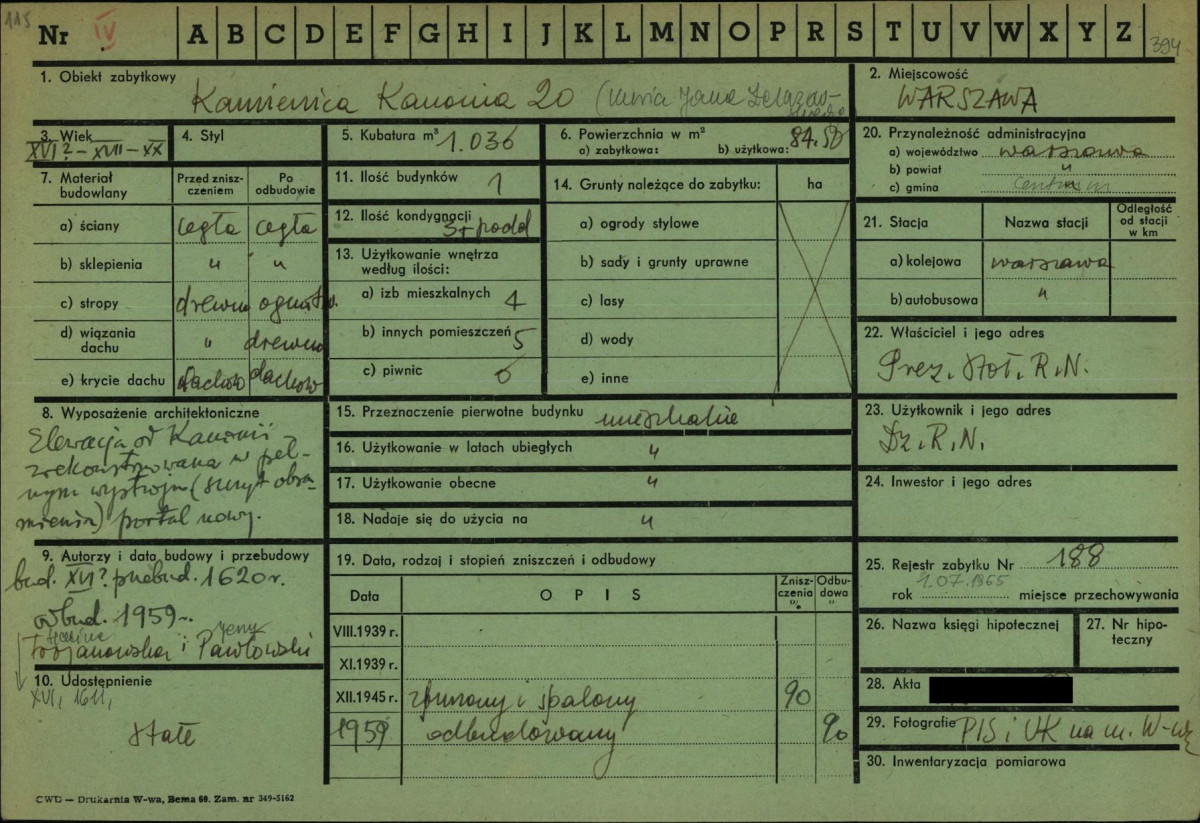 115
Nr IV A B C D E F G H I J K L M N O P R S T U V W X Y Z 394
1. Obiekt zabytkowy
Kamienica Kanonia 20
2. Miejscowość
WARSZAWA
3. Wiek
XVI? – XVII – XX
4. Styl
5. Kubatura m³ 1.036
6. Powierzchnia w m²
a) zabytkowa: b) użytkowa: 84.50
20. Przynależność administracyjna
a) województwo warszawa
b) powiat "
c) gmina centrum
7. Materiał budowlany
Przed zniszczeniem
Po odbudowie
a) ściany cegła cegła
b) sklepienia " "
c) stropy drewno ogniotrw.
d) wiązania dachu " drewno
e) krycie dachu dachów dachów
11. Ilość budynków 1
12. Ilość kondygnocji 3+podd
13. Użytkowanie wnętrza według ilości:
a) izb mieszkalnych 4
b) innych pomieszczeń 5
c) piwnic
14. Grunty należące do zabytku: ha
a) ogrody stylowe
b) sady i grunty uprawne
c) lasy
d) wody
e) inne
21. Stacja
Nazwa stacji
Odległość od stacji w km
a) kolejowa warszawa
b) autobusowa "
22. Właściciel i jego adres
Prez. Stoł. R.N.
8. Wyposażenie architektoniczne
Elewacja od Kanonii
zrekonstruowana w peł-
nym wystroju (szczyt obra-
mienia) portal nowy.
15. Przeznaczenie pierwotne budynku mieszkalne
16. Użytkowanie w latach ubiegłych "
17. Użytkowanie obecne "
18. Nadaje się do użycia na "
23. Użytkownik i jego adres
Dz. R.N.
24. Inwestor i jego adres
9. Autorzy i data budowy i przebudowy
bud. XVI? przebud. 1620 r.
odbud. 1959 r.
Jerzy
Trojanowska i Pawłowski
19. Data, rodzaj i stopień zniszczeń i odbudowy
Data OPIS Zniszczenia % Odbudowa "
VIII.1939 r.
XI.1939 r.
XII.1945 r. zburzony i spalony 90
1959 odbudowany 90
25. Rejestr zabytku Nr 188
1.07.1965
rok miejsce przechowywania
26. Nazwa księgi hipotecznej
27. Nr hipoteczny
28. Akta
29. Fotografie PIS i UK na m. W-wę
30. Inwentaryzacja pomiarowa
10. Udostępnienie
XVI, 1611,
stałe
CWD — Drukarnia W-wa, Bema 60. Zam. nr 349-5162